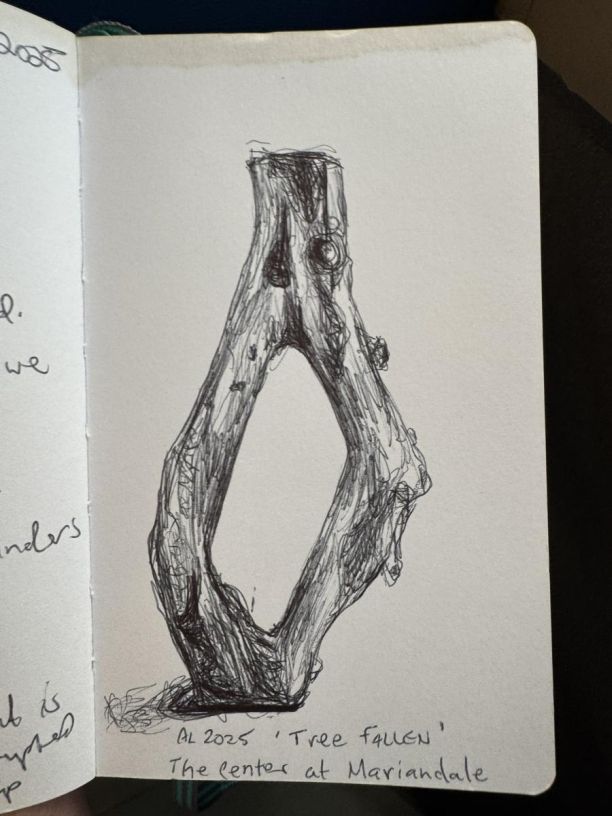 2025
we
AL 2025 'Tree FALLEN'
The center at Mariandale